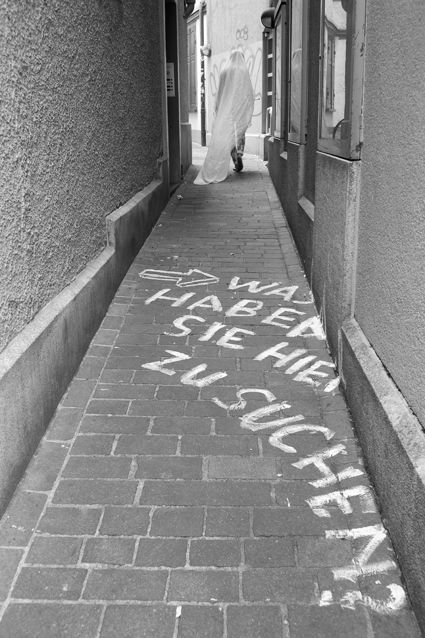 WAS
HABEN
SIE HIER
ZU SUCHEN?